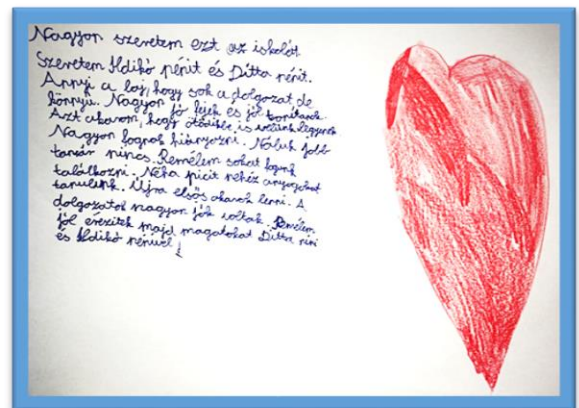 Nagyon szeretem ezt az iskolát
Szeretem Ildikó nénit és Ditta nénit.
Annyi a baj, hogy sok a dolgozat, de
könnyű. Nagyon jó fejek és jól tanítanak.
Azt akarom, hogy ötödikbe is velünk legyenek
Nagyon fognak hiányozni. Náluk jobb
tanár nincs. Remélem sokat fogunk
találkozni. Néha picit nehéz anyagokat
tanulunk. Újra elsős akarok lenni. A
dolgozatok nagyon jók voltak. Remélem
jól érezitek majd magatokat Ditta néni
és Ildikó nénivel!